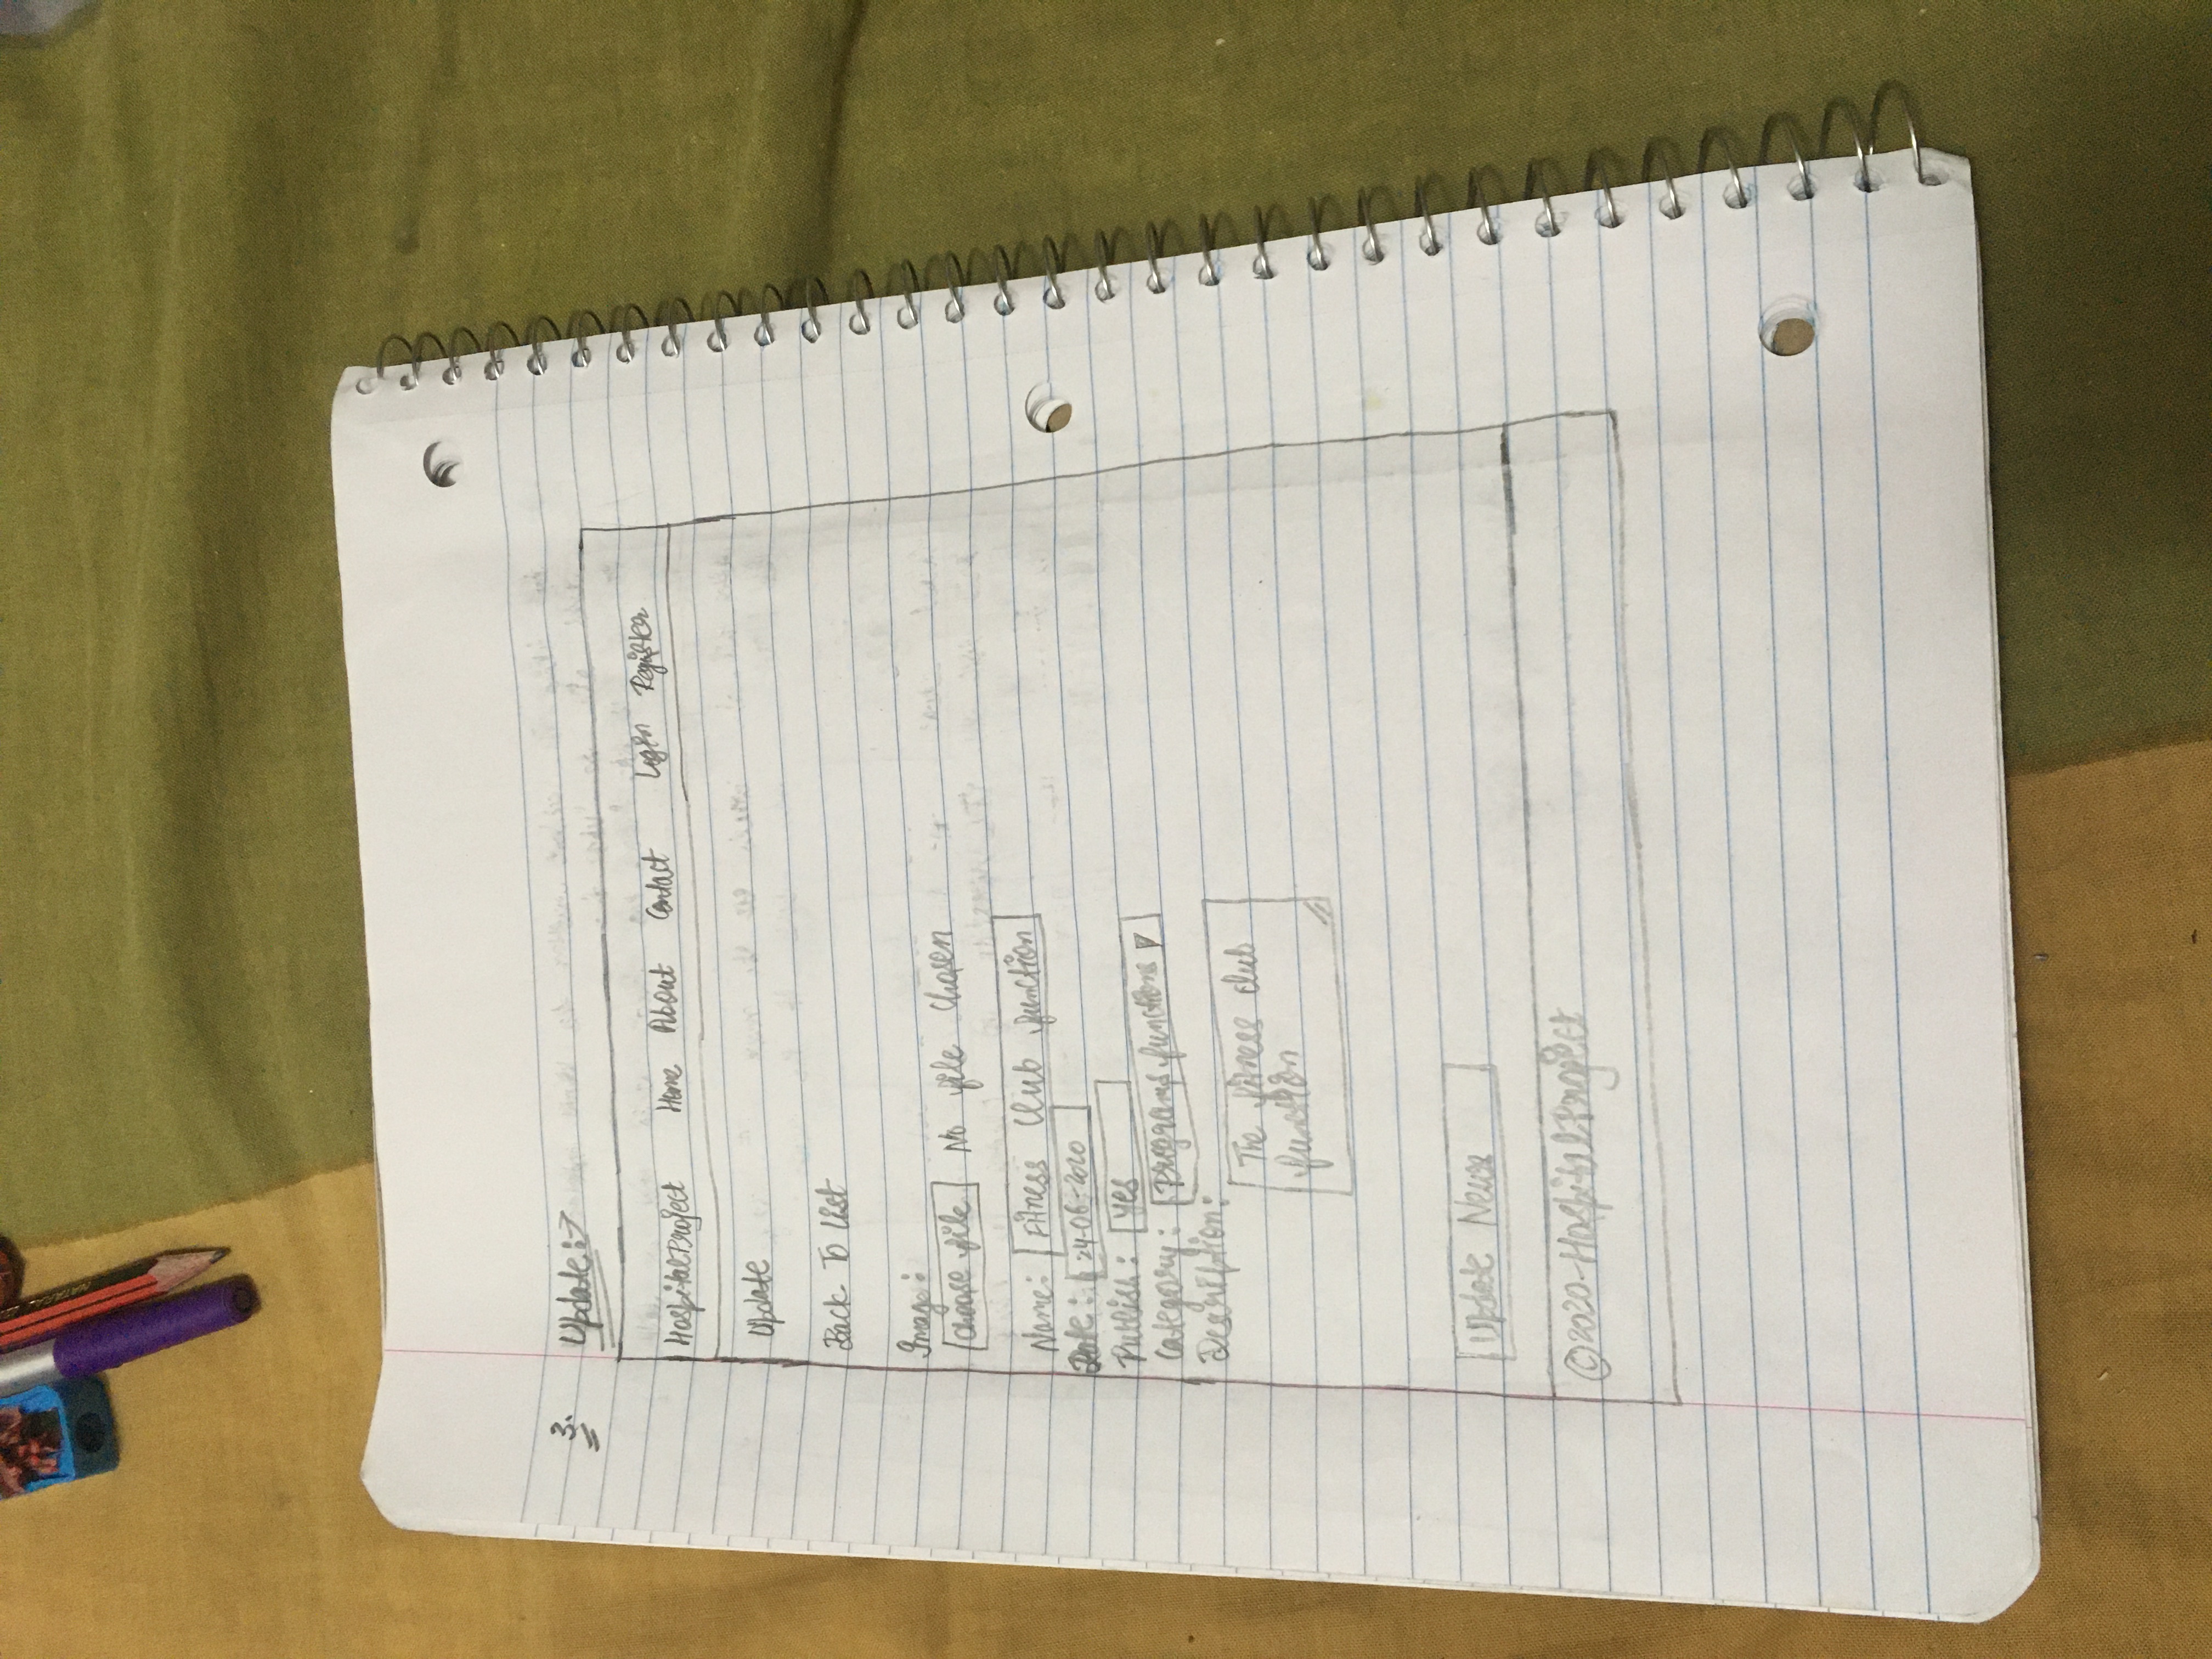 3. Update:→
HospitalProject Home About Contact Login Register
Update
Back To List
Image:
Choose file No file Chosen
Name: Fitness Club function
Date: 24-06-2020
Publish: yes
Category: Programs functions
Description:
The fitness club
function
Update News
©2020-HospitalProject